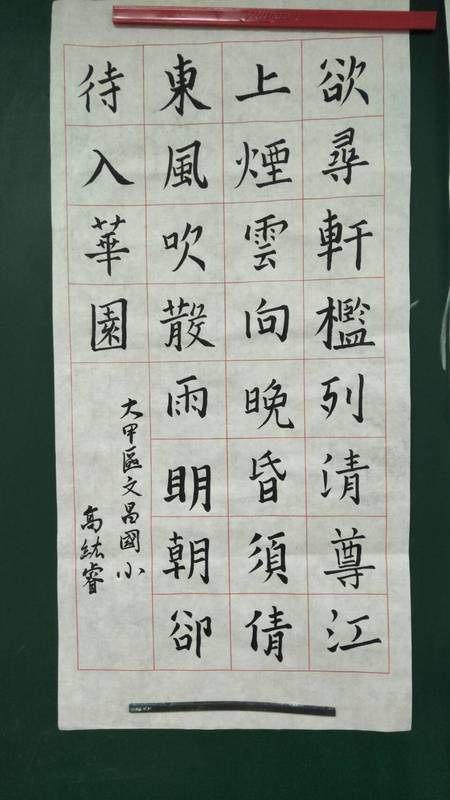 欲尋軒檻列清尊江
上煙雲向晚昏須倩
東風吹散雨明朝卻
待入華園
大甲區文昌國小
高紘睿